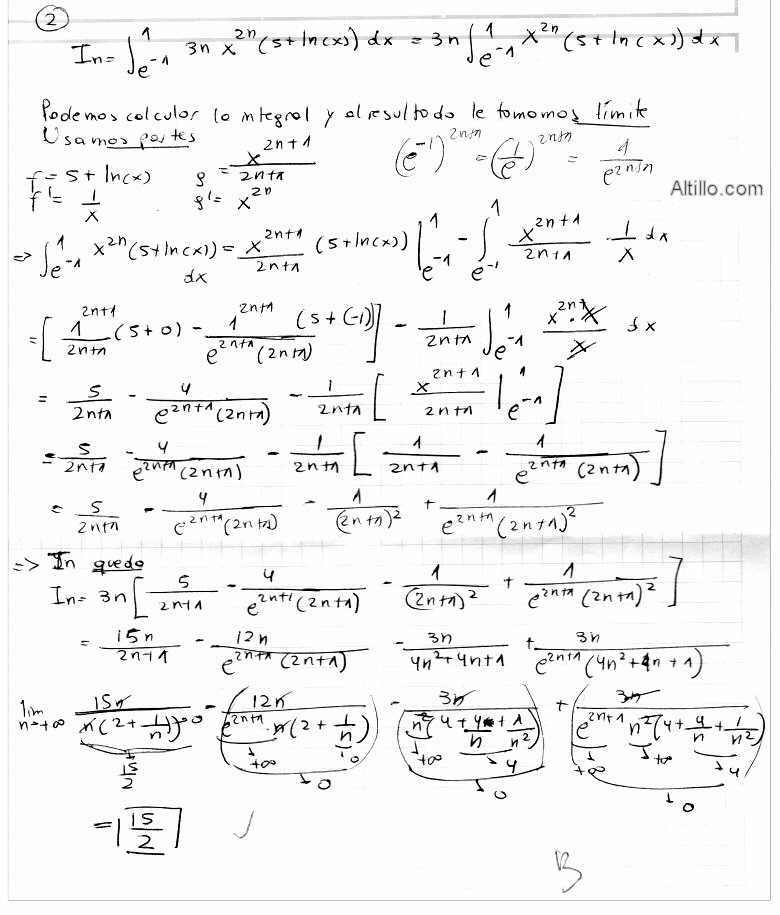 2
In = ∫_{e^-1}^{1} 3n x^{2n} (5+ln(x)) dx = 3n ∫_{e^-1}^{1} x^{2n} (5+ln(x)) dx
Podemos calcular la integral y al resultado le tomamos límite
Usamos partes
f = 5 + ln(x)   g = x^{2n+1}/(2n+1)   (e^{-1})^{2n+1} = (1/e)^{2n+1} = 1/e^{2n+1}
f' = 1/x   g' = x^{2n}
Altillo.com
=> ∫_{e^-1}^{1} x^{2n} (5+ln(x)) dx = x^{2n+1}/(2n+1) (5+ln(x)) |_{e^-1}^{1} - ∫_{e^-1}^{1} x^{2n+1}/(2n+1) · 1/x dx
= [ 1^{2n+1}/(2n+1) (5+0) - 1^{2n+1}/(e^{2n+1}(2n+1)) (5+(-1)) ] - 1/(2n+1) ∫_{e^-1}^{1} x^{2n}·x/x dx
= 5/(2n+1) - 4/(e^{2n+1}(2n+1)) - 1/(2n+1) [ x^{2n+1}/(2n+1) |_{e^-1}^{1} ]
= 5/(2n+1) - 4/(e^{2n+1}(2n+1)) - 1/(2n+1) [ 1/(2n+1) - 1/(e^{2n+1}(2n+1)) ]
= 5/(2n+1) - 4/(e^{2n+1}(2n+1)) - 1/(2n+1)^2 + 1/(e^{2n+1}(2n+1)^2)
=> In queda
In = 3n [ 5/(2n+1) - 4/(e^{2n+1}(2n+1)) - 1/(2n+1)^2 + 1/(e^{2n+1}(2n+1)^2) ]
= 15n/(2n+1) - 12n/(e^{2n+1}(2n+1)) - 3n/(4n^2+4n+1) + 3n/(e^{2n+1}(4n^2+4n+1))
lim n→+∞ 15n/(n(2+1/n)) - (12n/(e^{2n+1}·n(2+1/n))) - (3n/(n^2(4+4/n+1/n^2))) + (3n/(e^{2n+1} n^2(4+4/n+1/n^2)))
→0 →+∞ →0 →+∞ →4 →+∞ →+∞ →4
15/2 →0 →0 →0
= 15/2 ✓
B